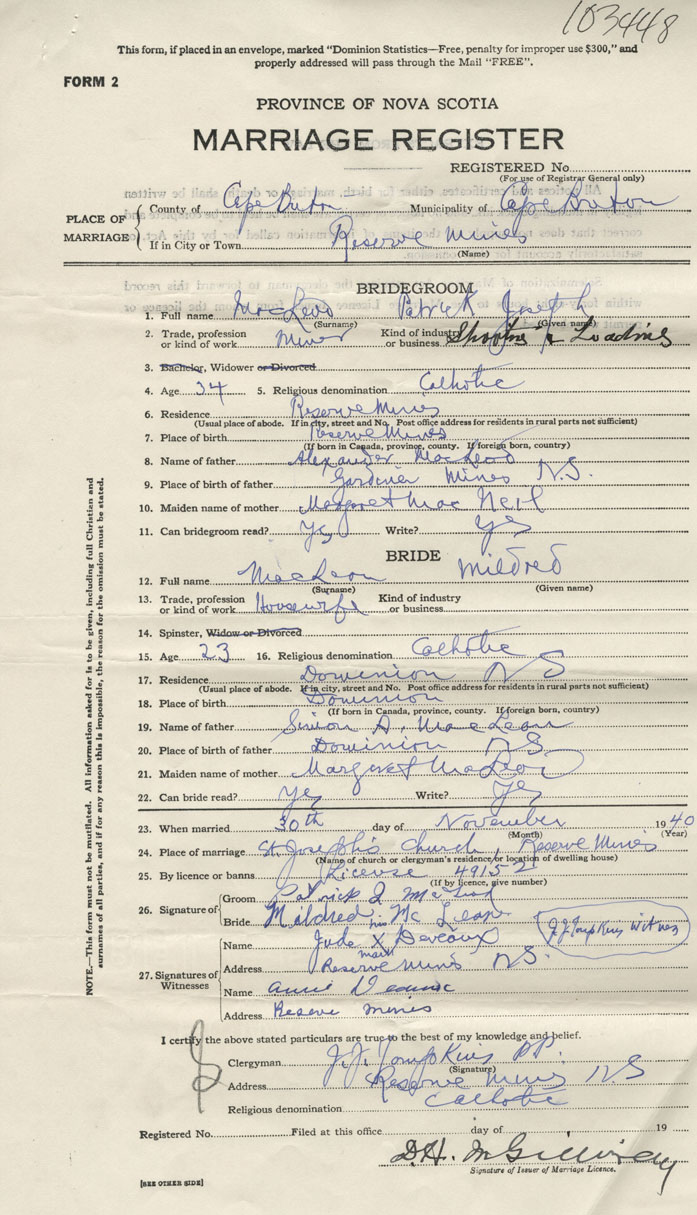 103448
This form, if placed in an envelope, marked "Dominion Statistics—Free, penalty for improper use $300," and
properly addressed will pass through the Mail "FREE".
FORM 2
PROVINCE OF NOVA SCOTIA
MARRIAGE REGISTER
REGISTERED No.
(For use of Registrar General only)
PLACE OF MARRIAGE
County of Cape Breton Municipality of Cape Breton
If in City or Town Reserve Mines
(Name)
BRIDEGROOM
1. Full name MacLeod Patrick Joseph
(Surname) (Given name)
2. Trade, profession or kind of work Miner Kind of industry or business Shooting & Loading
3. Bachelor, Widower or Divorced
4. Age 34 5. Religious denomination Catholic
6. Residence Reserve Mines
(Usual place of abode. If in city, street and No. Post office address for residents in rural parts not sufficient)
7. Place of birth Reserve Mines
(If born in Canada, province, county. If foreign born, country)
8. Name of father Alexander MacLeod
9. Place of birth of father Gardiner Mines N.S.
10. Maiden name of mother Margaret MacNeil
11. Can bridegroom read? Yes Write? Yes
BRIDE
12. Full name MacLean Mildred
(Surname) (Given name)
13. Trade, profession or kind of work Housewife Kind of industry or business
14. Spinster, Widow or Divorced
15. Age 23 16. Religious denomination Catholic
17. Residence Dominion NS
(Usual place of abode. If in city, street and No. Post office address for residents in rural parts not sufficient)
18. Place of birth Dominion
(If born in Canada, province, county. If foreign born, country)
19. Name of father Simon A. MacLean
20. Place of birth of father Dominion NS
21. Maiden name of mother Margaret MacLeod
22. Can bride read? Yes Write? Yes
23. When married 30th day of November 1940
(Month) (Year)
24. Place of marriage St. Joseph's Church, Reserve Mines
(Name of church or clergyman's residence/or location of dwelling house)
25. By licence or banns License 49152
(If by licence, give number)
26. Signature of
Groom Patrick J McLeod
Bride Mildred McLean
27. Signatures of Witnesses
his
Name Jude X Deveaux J.J. Tompkins Witness
mark
Address Reserve Mines N.S.
Name Annie
Address Reserve Mines
I certify the above stated particulars are true to the best of my knowledge and belief.
Clergyman J.J. Tompkins P.P.
(Signature)
Address Reserve Mines NS
Religious denomination Catholic
Registered No. Filed at this office day of 19
D.H. McGillivray
Signature of Issuer of Marriage Licence.
[SEE OTHER SIDE]
NOTE.—This form must not be mutilated. All information asked for is to be given, including full Christian and
surnames of all parties, and if for any reason this is impossible, the reason for the omission must be stated.